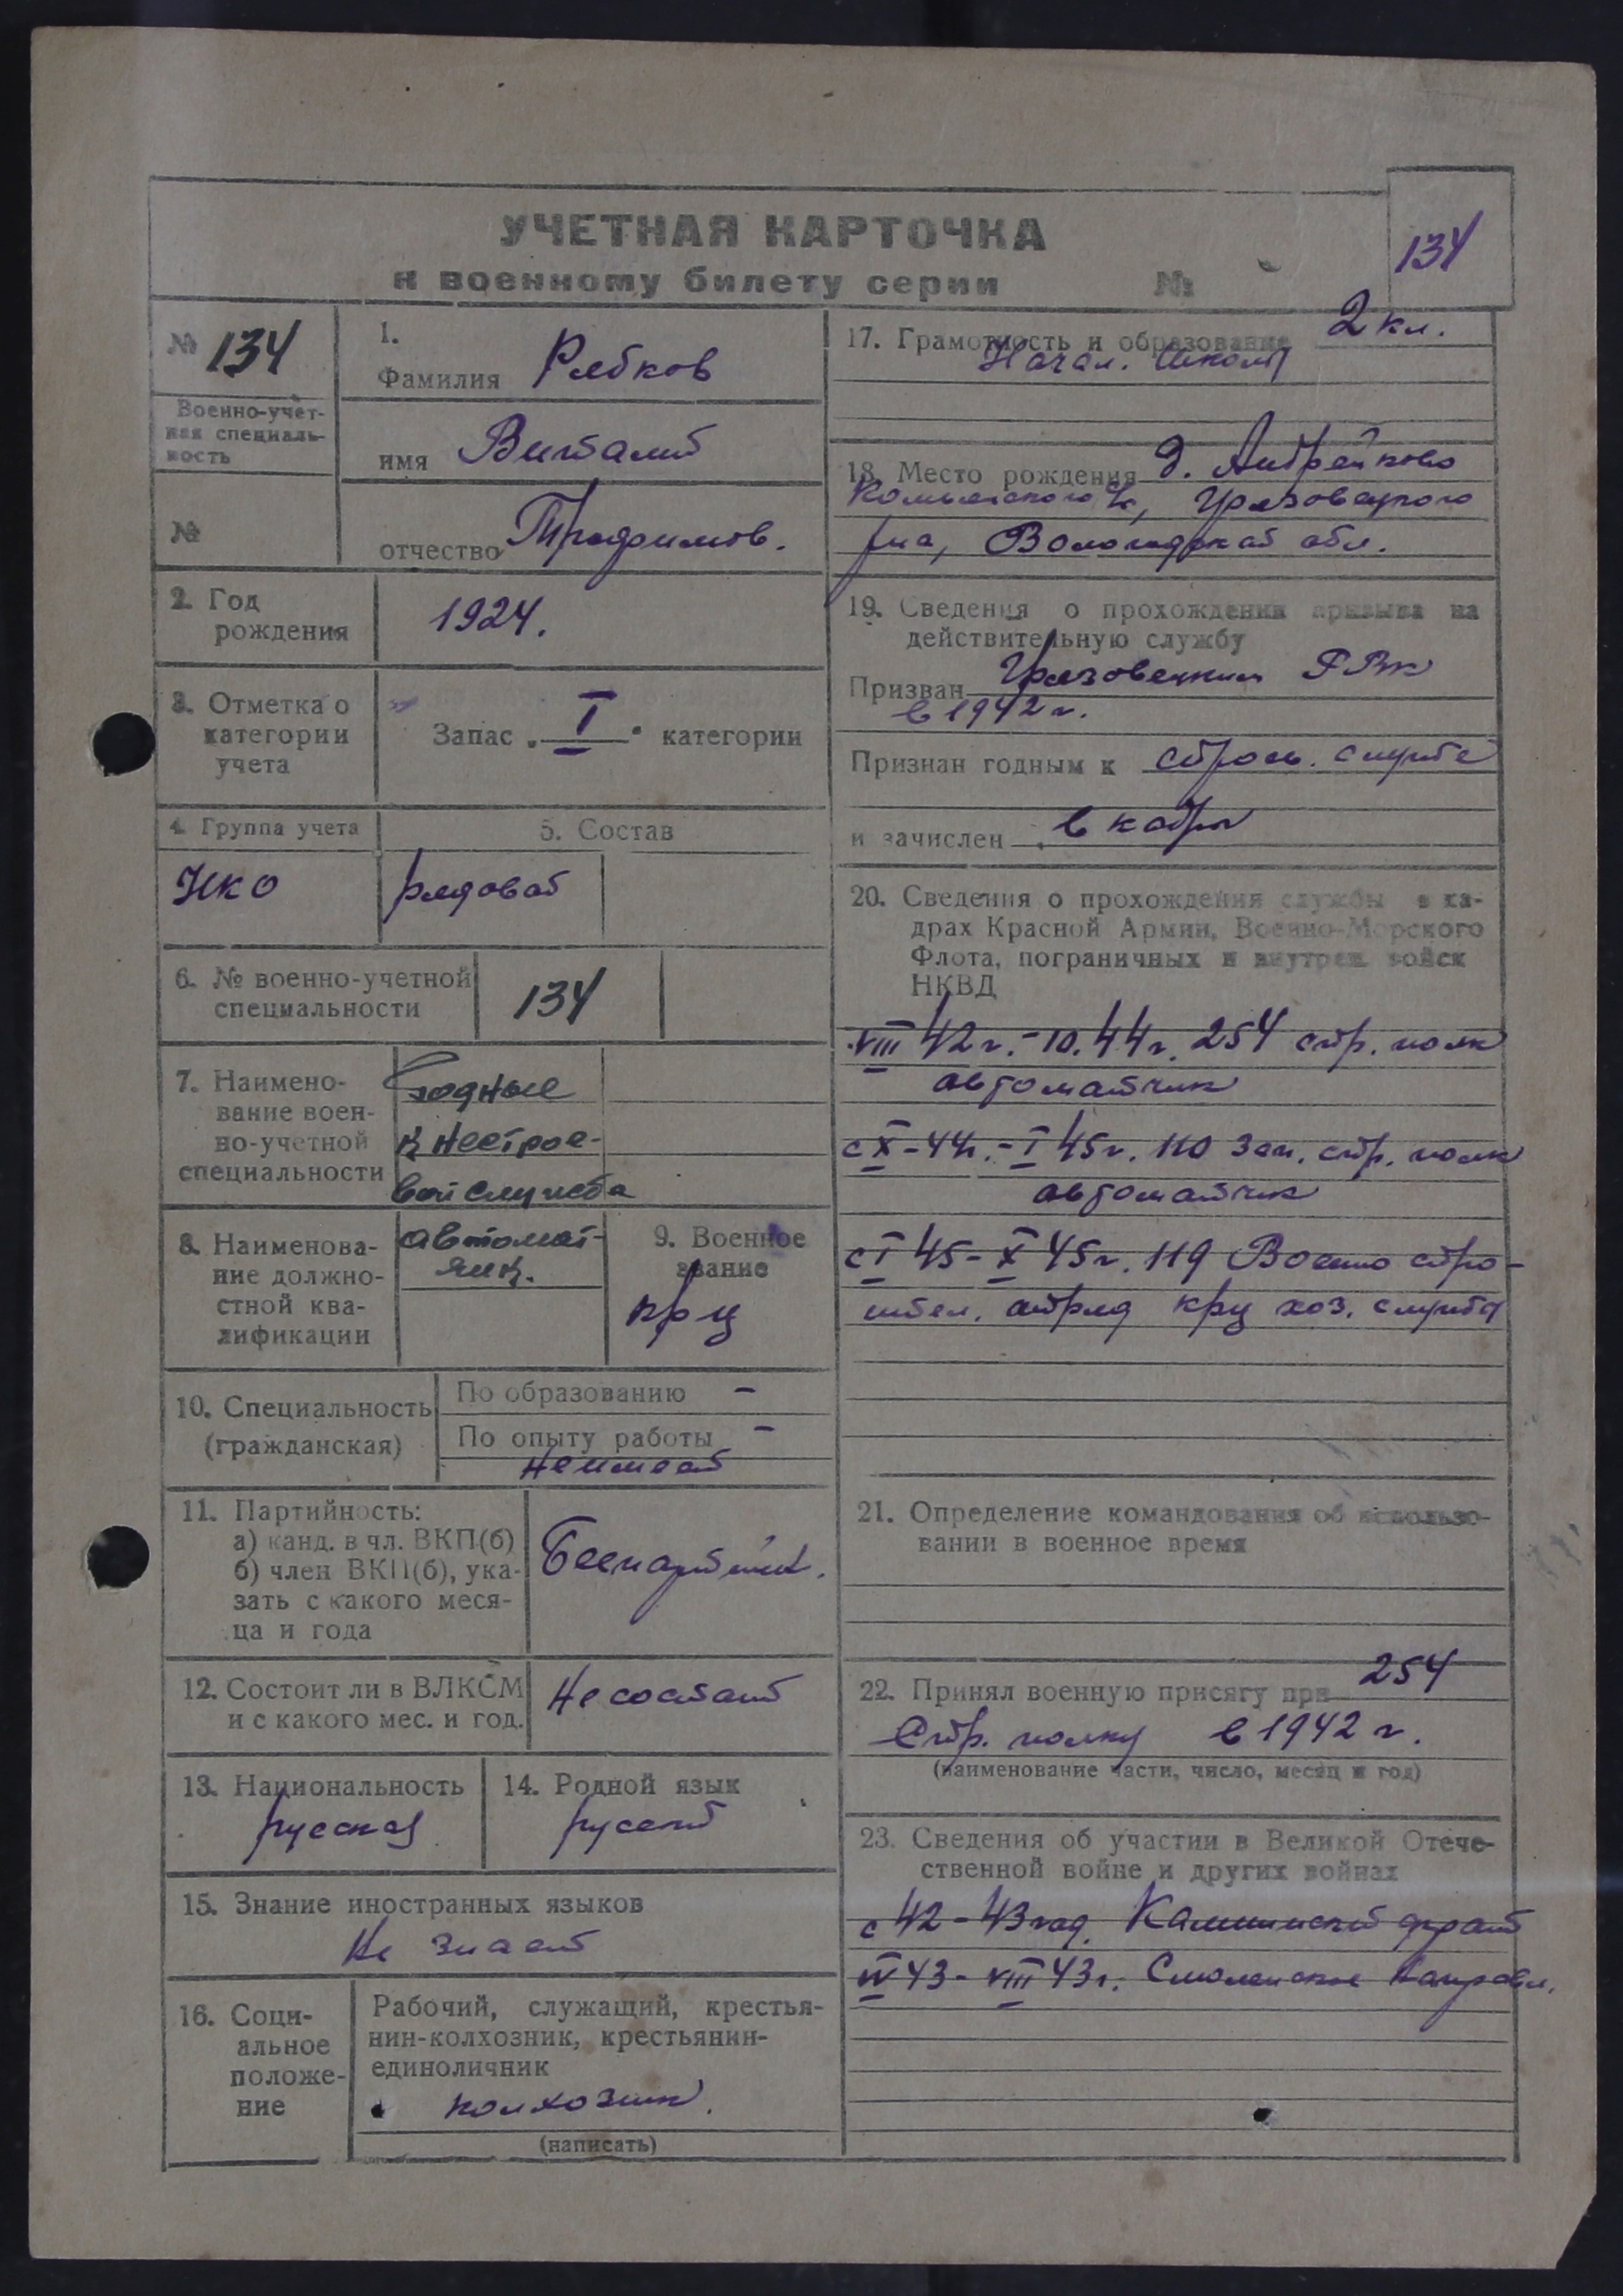 УЧЕТНАЯ КАРТОЧКА
к военному билету серии №
134
№ 134
Военно-учет-
ная специаль-
ность
№
1.
Фамилия Рябков
имя Виталий
отчество Трофимов.
2. Год
рождения
1924.
3. Отметка о
категории
учета
Запас „ I " категории
4. Группа учета
5. Состав
НКО
рядовой
6. № военно-учетной
специальности
134
7. Наимено-
вание воен-
но-учетной
специальности
Годные
к нестрое-
вой службе
8. Наименова-
ние должно-
стной ква-
лификации
автомат-
чик.
9. Военное
звание
кр-ц
10. Специальность
(гражданская)
По образованию -
По опыту работы -
не имеет
11. Партийность:
а) канд. в чл. ВКП(б)
б) член ВКП(б), ука-
зать с какого меся-
ца и года
Беспартийн.
12. Состоит ли в ВЛКСМ
и с какого мес. и год.
Не состоит
13. Национальность
русский
14. Родной язык
русский
15. Знание иностранных языков
Не знает
16. Соци-
альное
положе-
ние
Рабочий, служащий, крестья-
нин-колхозник, крестьянин-
единоличник
колхозник.
(написать)
17. Грамотность и образование 2 кл.
Начал. школы
18. Место рождения д. Андрейково
Грязовецкого
р-на, Вологодской обл.
19. Сведения о прохождении призыва на
действительную службу
Призван Грязовецким РВК
в 1942 г.
Признан годным к строев. службе
и зачислен в кадры
20. Сведения о прохождении службы в ка-
драх Красной Армии, Военно-Морского
Флота, пограничных и внутрен. войск
НКВД
VIII 42 г. - 10.44 г. 254 стр. полк
автоматчик
с X - 44 г. - I 45 г. 110 зап. стр. полк
автоматчик
с I 45 - X 45 г. 119 Военно стро-
ител. отряд кр-ц хоз. службы
21. Определение командования об использо-
вании в военное время
22. Принял военную присягу при 254
Стр. полку в 1942 г.
(наименование части, число, месяц и год)
23. Сведения об участии в Великой Отече-
ственной войне и других войнах
с 42 - 43 год. Калининский фронт
IV 43 - VIII 43 г. Смоленское направл.